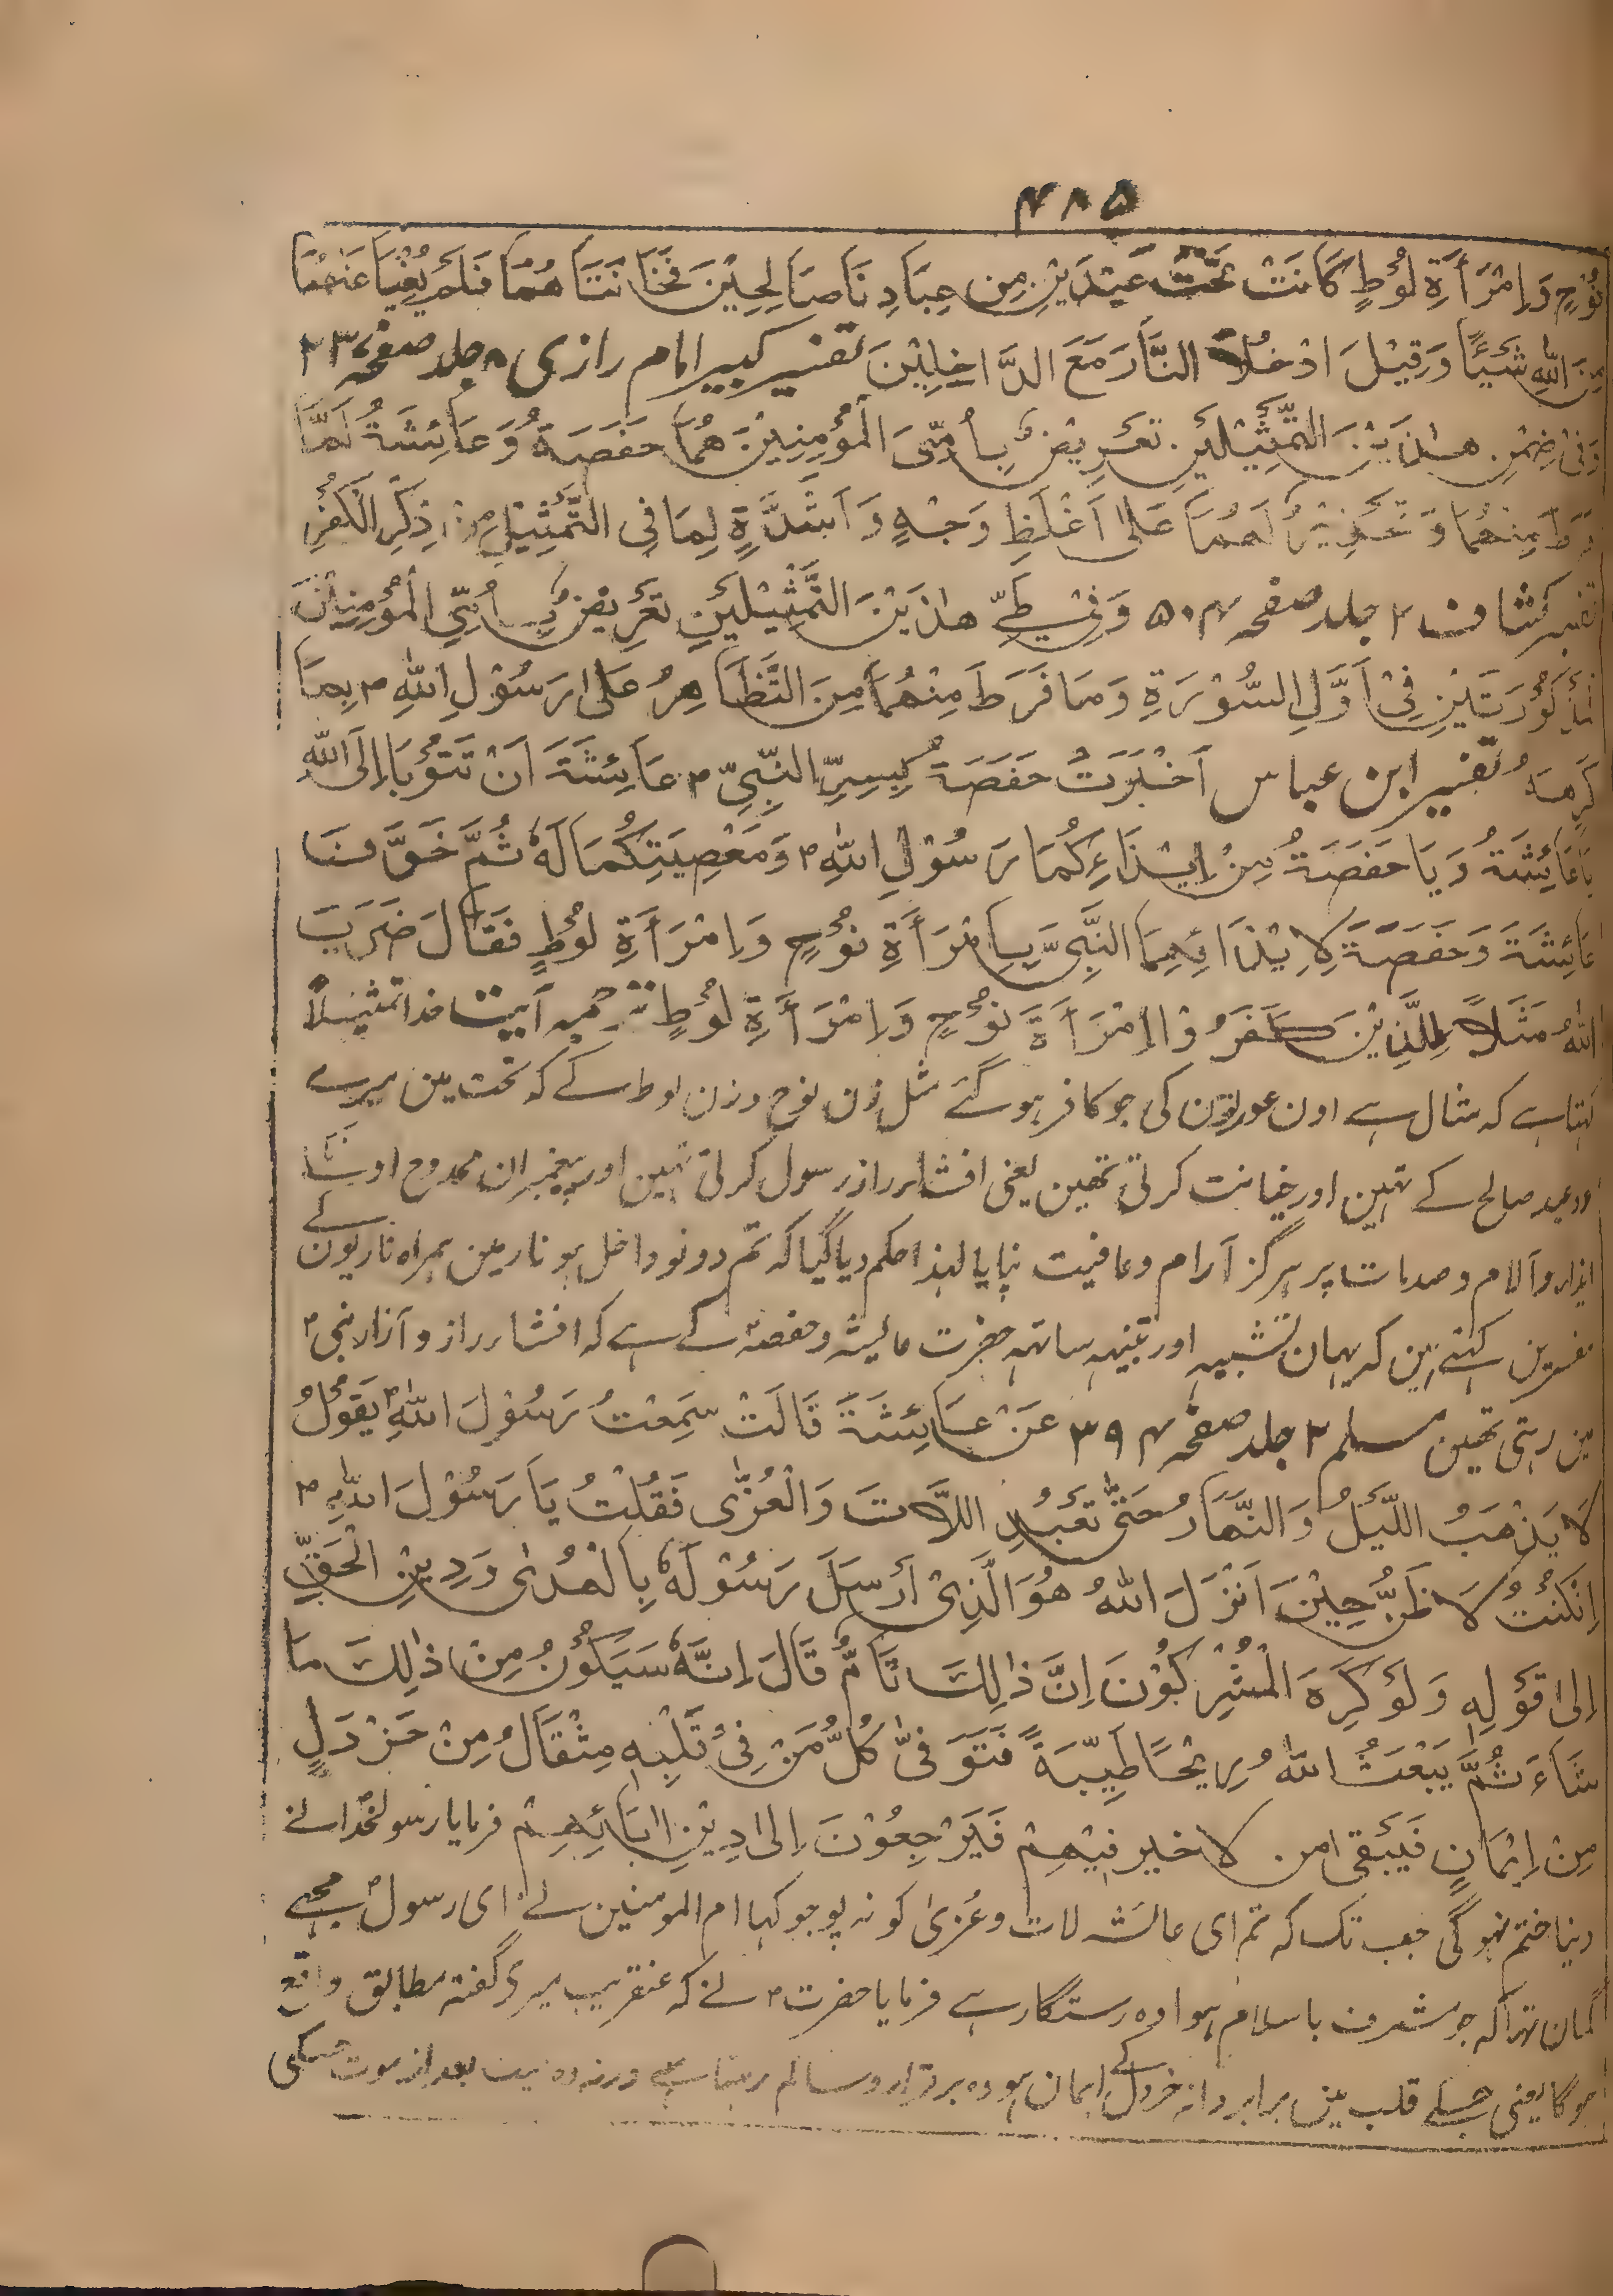 ۴۸۵
نُوْحٍ وَاِمْرَأَةِ لُوْطٍ كَانَتْ تَحْتَ عَبْدَيْنِ مِنْ عِبَادِنَا صَالِحِيْنَ فَخَانَتَا هُمَا فَلَمْ يُغْنِيَا عَنْهُمَا
مِنَ اللّٰهِ شَيْئًا وَقِيْلَ ادْخُلَا النَّارَ مَعَ الدَّاخِلِيْنَ تفسیر کبیر امام رازی ۸ جلد صفحہ ۲۳۳
وَفِیْ ضِمْنِ هٰذَيْنِ التَّمْثِيْلَيْنِ تَعْرِيْضٌ بِاُمَّیِ الْمُؤْمِنِيْنَ هُمَا حَفْصَةُ وَعَائِشَةُ لَمَّا
فَرَطَ مِنْهُمَا وَ تَحْذِيْرٌ لَهُمَا عَلٰى اَغْلَظِ وَجْهٍ وَ اَشَدَّةٍ لِمَا فِى التَّمْثِيْلِ مِنْ ذِكْرِ الْكُفْرِ
تفسیر کشاف ۲ جلد صفحہ ۵۰۴ وَفِیْ طَیِّ هٰذَيْنِ التَّمْثِيْلَيْنِ تَعْرِيْضٌ بِاُمَّیِ الْمُؤْمِنِيْنَ
الْمَذْكُوْرَتَيْنِ فِیْ اَوَّلِ السُّوْرَةِ وَمَا فَرَطَ مِنْهُمَا مِنَ التَّظَاهُرِ عَلٰى رَسُوْلِ اللّٰهِ ؐ بِمَا
كَرِهَهٗ تفسیر ابن عباس اَخْبَرَتْ حَفْصَةُ بِسِرِّ النَّبِیِّ ؐ عَائِشَةَ اَنْ تَتُوْبَا اِلَى اللّٰهِ
يَا عَائِشَةُ وَيَا حَفْصَةُ مِنْ اِيْذَاءِكُمَا رَسُوْلِ اللّٰهِ ؐ وَمَعْصِيَتِكُمَا لَهٗ ثُمَّ خَوَّفَنَا
عَائِشَةَ وَحَفْصَةَ لِاِيْذَائِهِمَا النَّبِیَّ بِاِمْرَأَةِ نُوْحٍ وَاِمْرَأَةِ لُوْطٍ فَقَالَ ضَرَبَ
اللّٰهُ مَثَلًا لِلَّذِيْنَ كَفَرُوْا امْرَأَةَ نُوْحٍ وَاِمْرَأَةِ لُوْطٍ ترجمہ آیت خدا تمثیلاً
کہتا ہے کہ مثال ہے اون عورتون کی جو کافر ہو گئے مثل زن نوح و زن لوط کے کہ تحت مین میرے
دو عبد صالح کے تہین اور خیانت کرتی تھین یعنی افشاء راز رسول کرتی تہین اور پیغمبران ممدوح اونسے
ایذا و آلام و صدمات پر ہرگز آرام و عافیت نپایا لہذا حکم دیا گیا کہ تم دونو داخل ہو نار مین ہمراہ ناریون کے
مفسرین کہتے ہین کہ یہان تشبیہ اور تنبیہ ساتہہ حضرت عایشہ و حفصہ کے ہے کہ افشاء راز و آزار نبی ؐ
مین رہتی تھین مسلم ۲ جلد صفحہ ۳۹۴ عَنْ عَائِشَةَ قَالَتْ سَمِعْتُ رَسُوْلَ اللّٰهِ ؐ يَقُوْلُ
لَا يَذْهَبُ اللَّيْلُ وَ النَّهَارُ حَتّٰى تُعْبَدِ اللَّاتَ وَ الْعُزّٰى فَقُلْتُ يَا رَسُوْلَ اللّٰهِ ؐ
اِنْ كُنْتُ لَا ظُنُّ حِيْنَ اَنْزَلَ اللّٰهُ هُوَ الَّذِیْ اَرْسَلَ رَسُوْلَهٗ بِالْهُدٰى وَ دِيْنِ الْحَقِّ
اِلٰى قَوْلِهٖ وَ لَوْ كَرِهَ الْمُشْرِكُوْنَ اِنَّ ذٰلِكَ تَامٌّ قَالَ اِنَّهٗ سَيَكُوْنُ مِنْ ذٰلِكَ مَا
شَاءَ ثُمَّ يَبْعَثُ اللّٰهُ رِيْحًا طَيِّبَةً فَتَوَفّٰى كُلُّ مَنْ فِیْ قَلْبِهٖ مِثْقَالُ مِنْ خَرْدَلٍ
مِنْ اِيْمَانٍ فَيَبْقٰى من لا خير فِيْهِمْ فَيَرْجِعُوْنَ اِلٰى دِيْنِ اٰبَائِهِمْ فرمایا رسولخدا نے
دنیا ختم نہو گی جب تک کہ تم ای عایشہ لات و عُزی کو نہ پوجو کہا ام المومنین نے ای رسول مجھے
گمان تہا کہ جو مشرف باسلام ہوا وہ رستگار ہے فرمایا حضرت ؐ نے کہ عنقریب میری گفتہ مطابق واقع
ہو گا یعنی جسکے قلب مین برابر دانہ خردل کے ایمان ہو وہ برقرار و سالم رہتا ہے ورنہ وہ بعد از موت